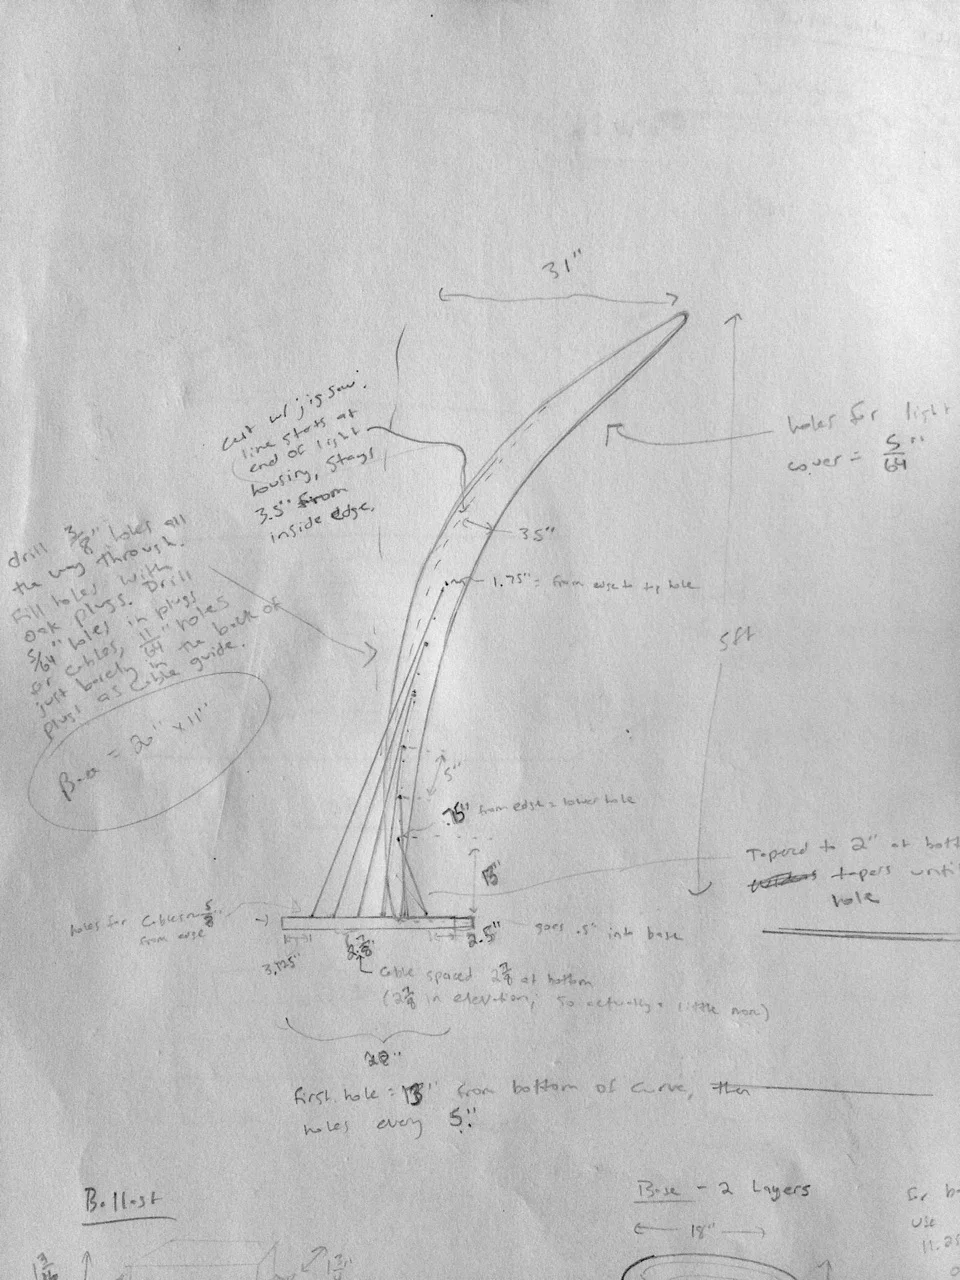 31"
cut w/ jigsaw.
line starts at
end of light
housing, stays
3.5" from
inside edge.
holes for light
cover = 5/64"
3.5"
drill 3/8" holes all
the way through.
Fill holes with
oak plugs. Drill
5/64" holes in plugs
for cables, 11/64" holes
just barely in the back of
plugs as cable guide.
1.75" = from edge to top hole
5ft
Base = 20" x 11"
5"
.75" from edge = lower hole
13"
Tapered to 2" at
tapers until
hole
holes for cables 5/8"
from edge
2.5"
goes .5" into base
3.125"
2 7/8"
Cable spaced 2 7/8 at bottom
(2 7/8 in elevation, so actually a little more)
first hole = 13" from bottom of curve, then
holes every 5"
Ballast
Base - 2 Layers
18"
use
1 3/4
1 3/4